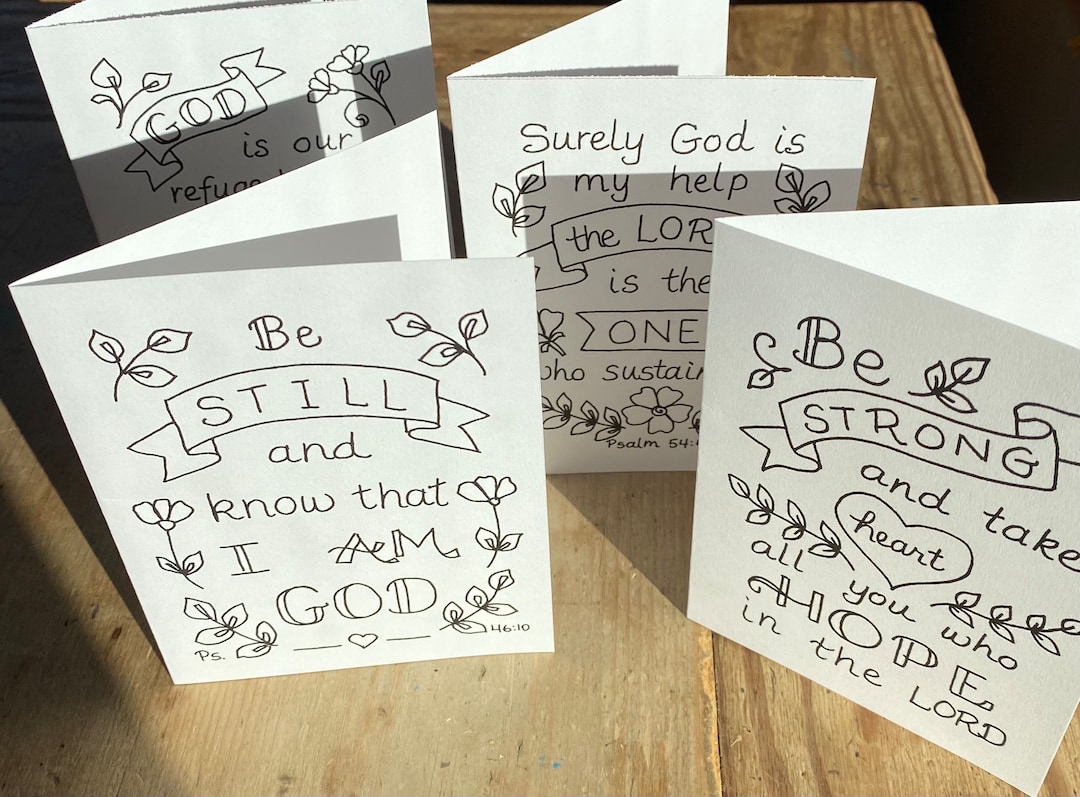 GOD
is our
refuge
Surely God is
my help
the LOR
is the
ONE
who sustain
Psalm 54:
Be
STILL
and
know that
I AM
GOD
Ps. 46:10
Be
STRONG
and take
heart
all you who
HOPE
in the LORD